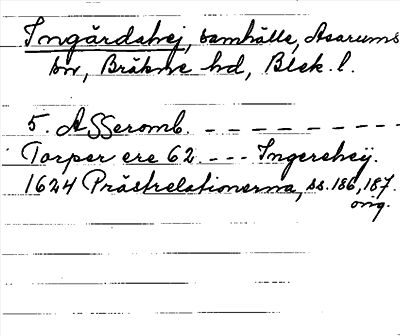 Ingärdshej, samhälle, Asarums
sn, Bräkne hd, Blek. l.
5. ASSeromb. – – – – – – – – –
Torper ere 62. – – – Ingersheÿ.
1624 Prästrelationerna, ss. 186, 187.
orig.